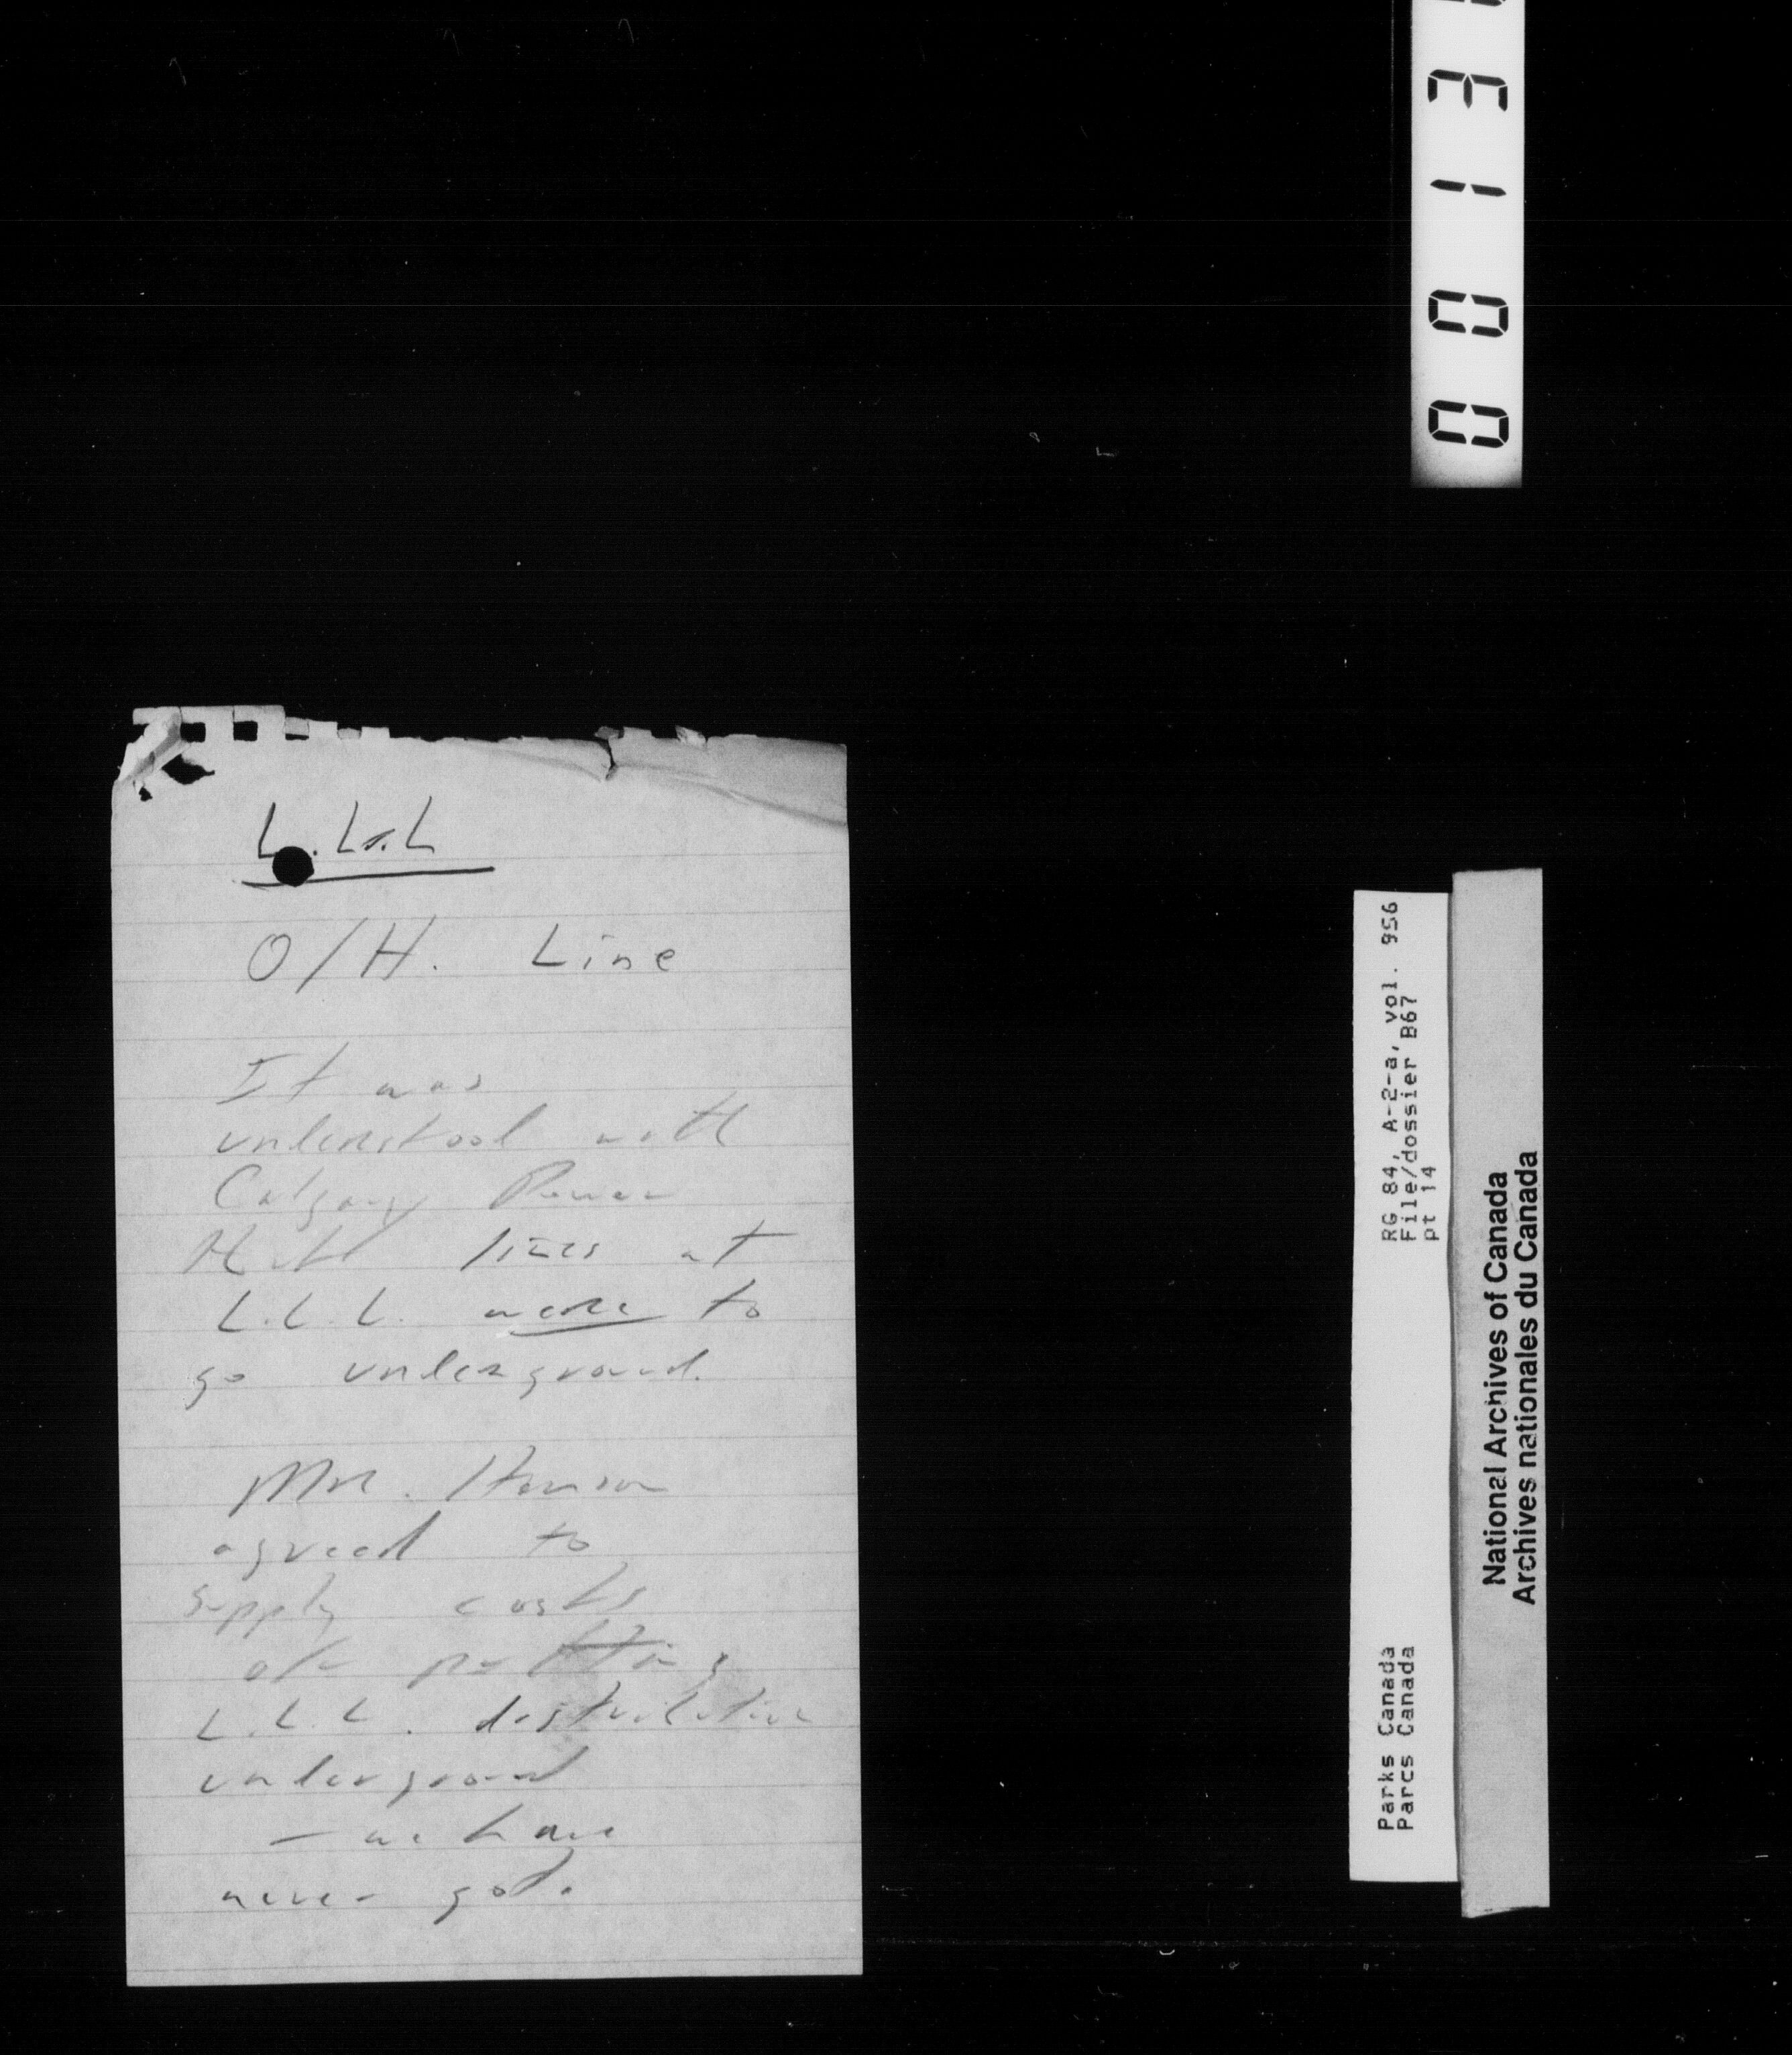 L. Ls. L
O/H. Line
It was
understood with
Calgary Power
that lines at
L.L.L. were to
go underground.
Mr.
agreed to
supply costs
of putting
L.L.L. distribution
underground
— we have
never got.
0 0 1 3
RG 84, A-2-a, vol. 956
File/dossier B67
pt 14
Parks Canada
Parcs Canada
National Archives of Canada
Archives nationales du Canada